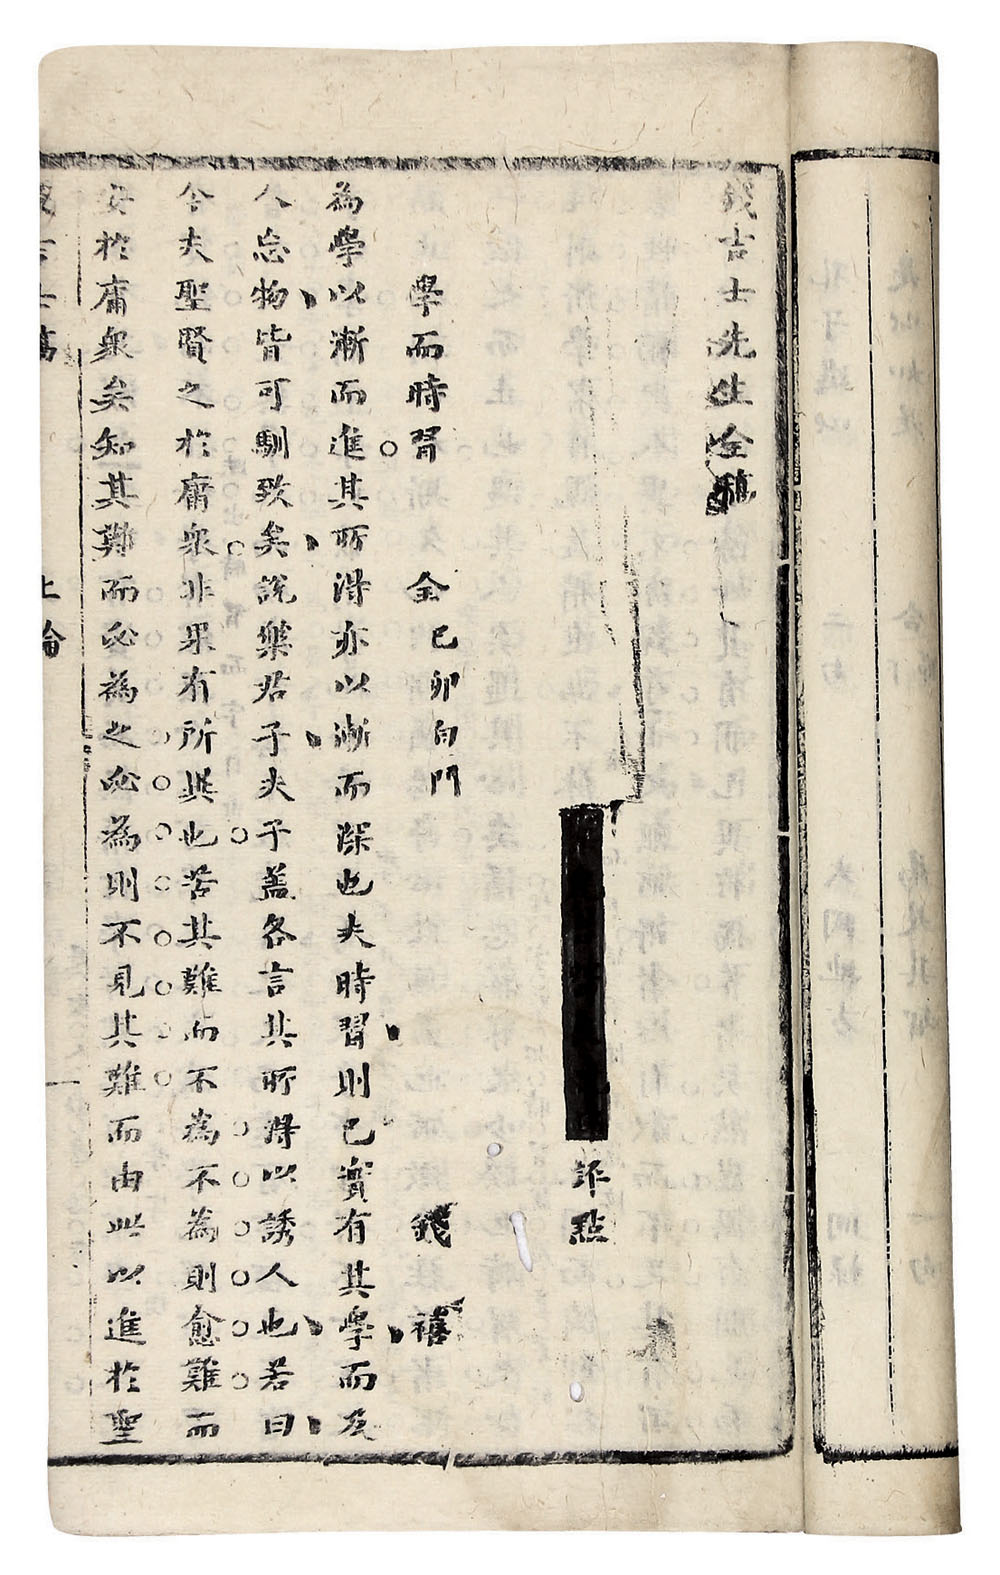 錢吉士先生全稿
評點
學而時習 全 己卯白門 錢 禧
為學以漸而進其所得亦以漸而深也夫時習則已實有其學而及
人忘物皆可馴致矣說樂君子夫子蓋各言其所得以誘人也若曰
今夫聖賢之於庸眾非果有所異也苦其難而不為不為則愈難而
安於庸眾矣知其難而必為之必為則不見其難而由此以進於聖
上論
一